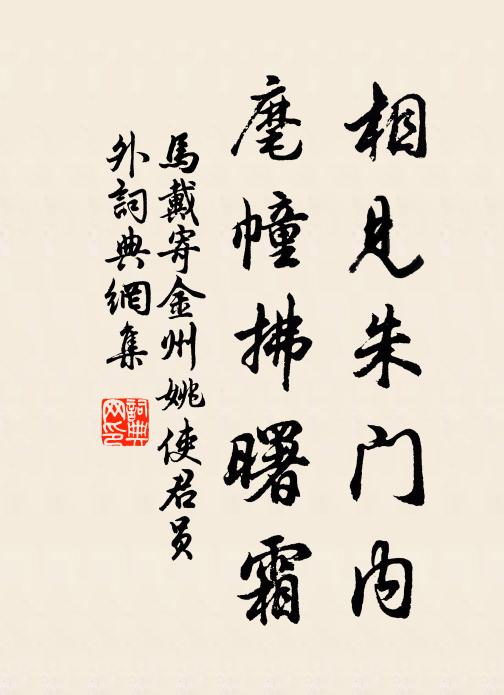 相見朱门内
麾幢拂曙霜
馬戴寄金州姚使君員
外詞典網集
詞典
网印